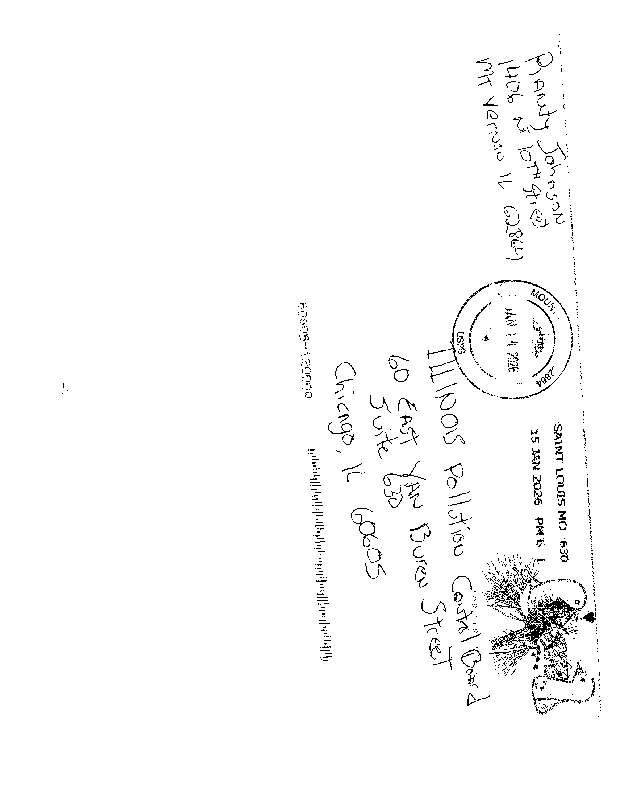 Randy Johnson
1426 N 10TH Street
Mt Vernon IL 62864
MOUNT
JAN 14 2026
62864
USPS
SAINT LOUIS MO 630
15 JAN 2026 PM 6 L
ILLINOIS Pollution Control Board
60 EAST VAN Buren STREET
Suite 630
Chicago, IL 60605